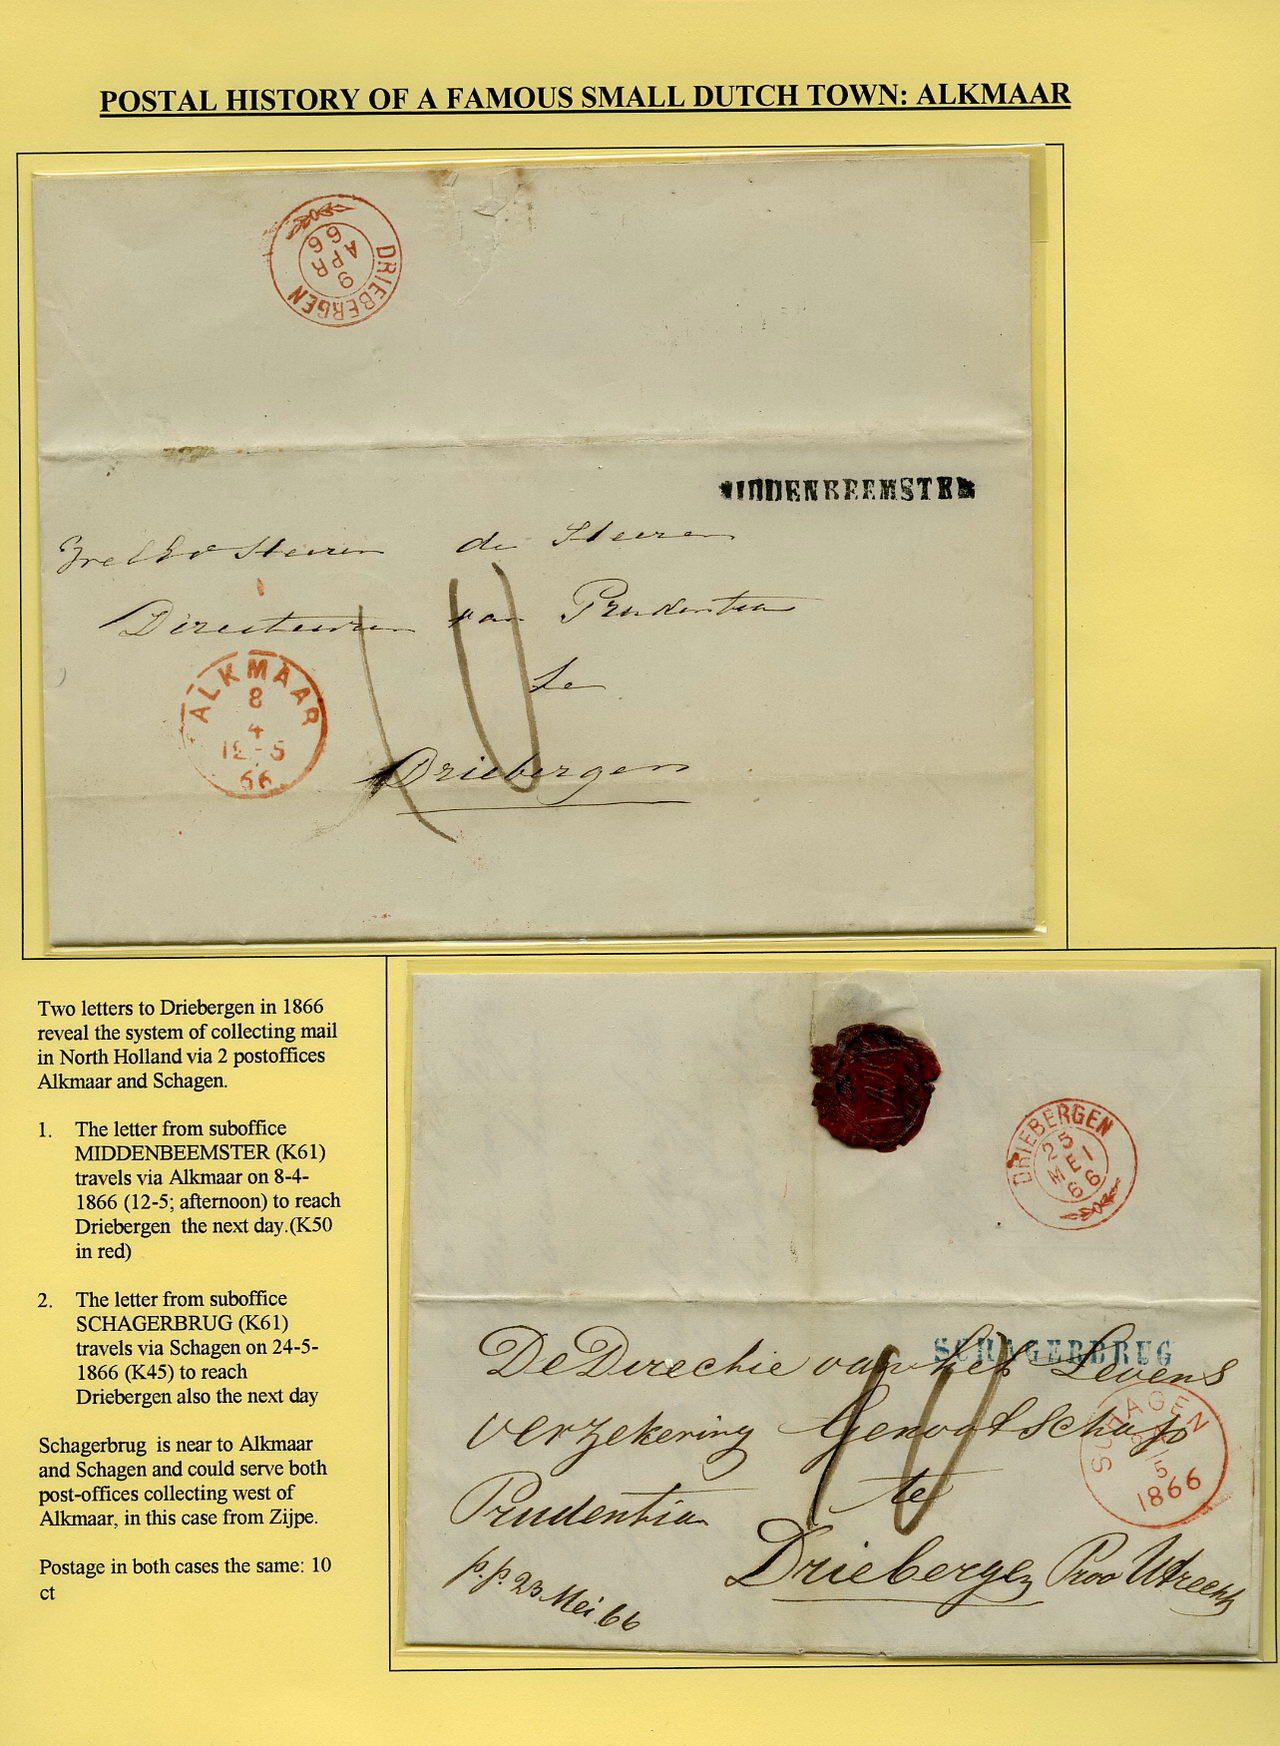 POSTAL HISTORY OF A FAMOUS SMALL DUTCH TOWN: ALKMAAR
DRIEBERGEN
9
APR
66
MIDDENBEEMSTER
de Heeren
Directeuren van Prudentia
te
Driebergen
10
ALKMAAR
8
4
12-5
66
Two letters to Driebergen in 1866
reveal the system of collecting mail
in North Holland via 2 postoffices
Alkmaar and Schagen.
1. The letter from suboffice
MIDDENBEEMSTER (K61)
travels via Alkmaar on 8-4-
1866 (12-5; afternoon) to reach
Driebergen the next day.(K50
in red)
2. The letter from suboffice
SCHAGERBRUG (K61)
travels via Schagen on 24-5-
1866 (K45) to reach
Driebergen also the next day
Schagerbrug is near to Alkmaar
and Schagen and could serve both
post-offices collecting west of
Alkmaar, in this case from Zijpe.
Postage in both cases the same: 10
ct
DRIEBERGEN
25
MEI
66
SCHAGERBRUG
De Directie van het Levens
verzekering Genootschap
Prudentia te
Driebergen Prov Utrecht
p.p. 23 Mei. 66
10
SCHAGEN
24
5
1866